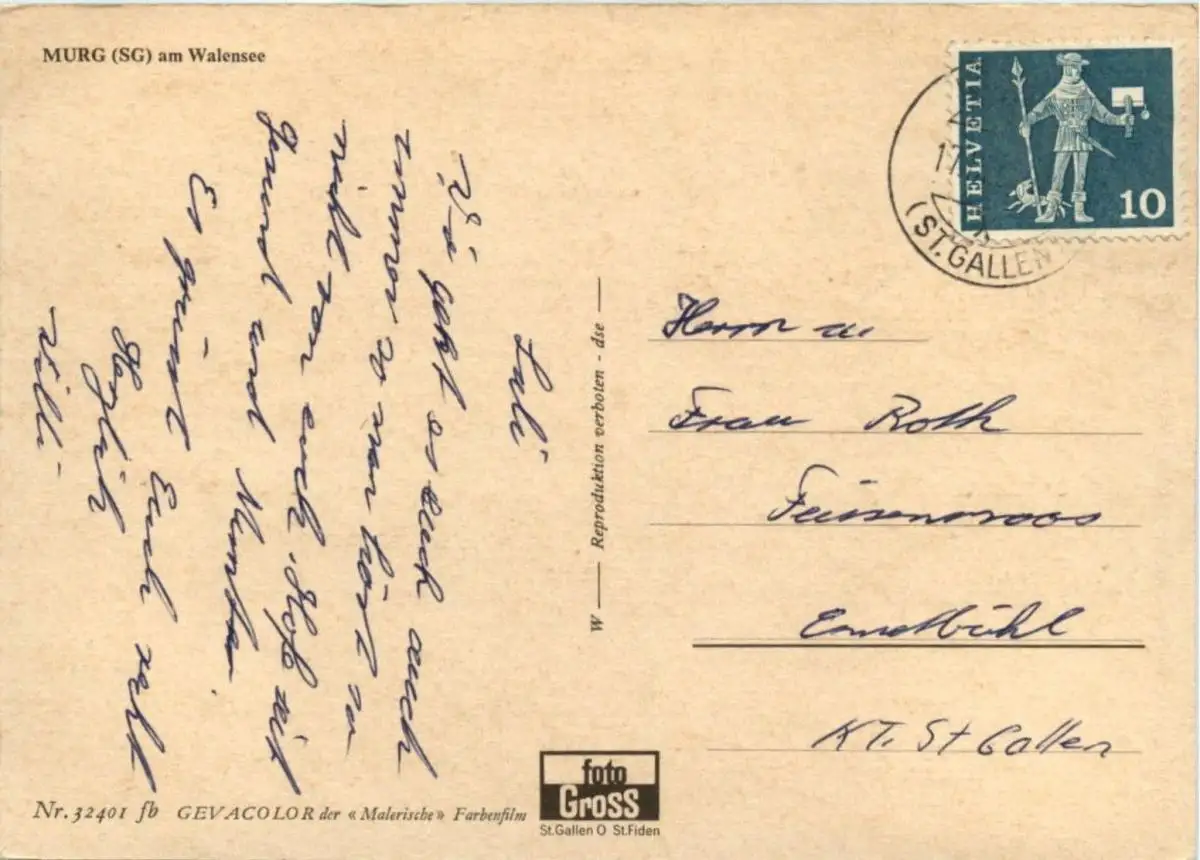 MURG (SG) am Walensee
HELVETIA
10
(ST. GALLEN
Luli
Wie geht es Euch auch
immer
nicht von euch. Hoffe seit
Gesund und Munter.
Es grüsst Euch recht
Herzlich
Willi
W — Reproduktion verboten - dse —
Herrn u
Frau Roth
Ernetbühl
KT. St Gallen
Nr. 32401 fb GEVACOLOR der « Malerische » Farbenfilm
foto
GROSS
St. Gallen O St. Fiden